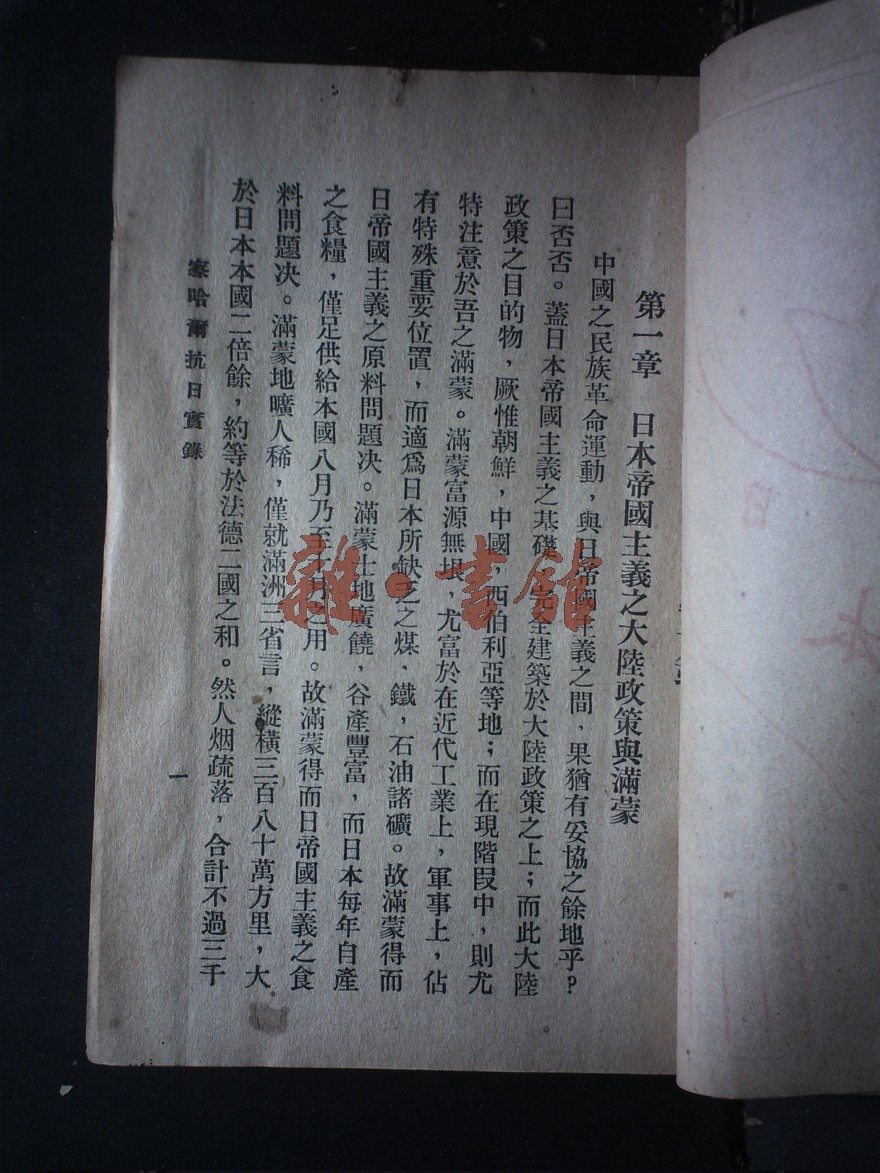 第一章　日本帝國主義之大陸政策與滿蒙
中國之民族革命運動，與日帝國主義之間，果猶有妥協之餘地乎？
曰否否。蓋日本帝國主義之基礎，完全建築於大陸政策之上；而此大陸
政策之目的物，厥惟朝鮮，中國　西伯利亞等地；而在現階段中，則尤
特注意於吾之滿蒙。滿蒙富源無垠，尤富於在近代工業上，軍事上，佔
有特殊重要位置，而適爲日本所缺乏之煤，鐵，石油諸礦。故滿蒙得而
日帝國主義之原料問題決。滿蒙土地廣饒，谷產豐富，而日本每年自產
之食糧，僅足供給本國八月乃至　月之用。故滿蒙得而日帝國主義之食
料問題決。滿蒙地曠人稀，僅就滿洲三省言，縱橫三百八十萬方里，大
於日本本國二倍餘，約等於法德二國之和。然人烟疏落，合計不過三千
察哈爾抗日實錄
一
雜·書館